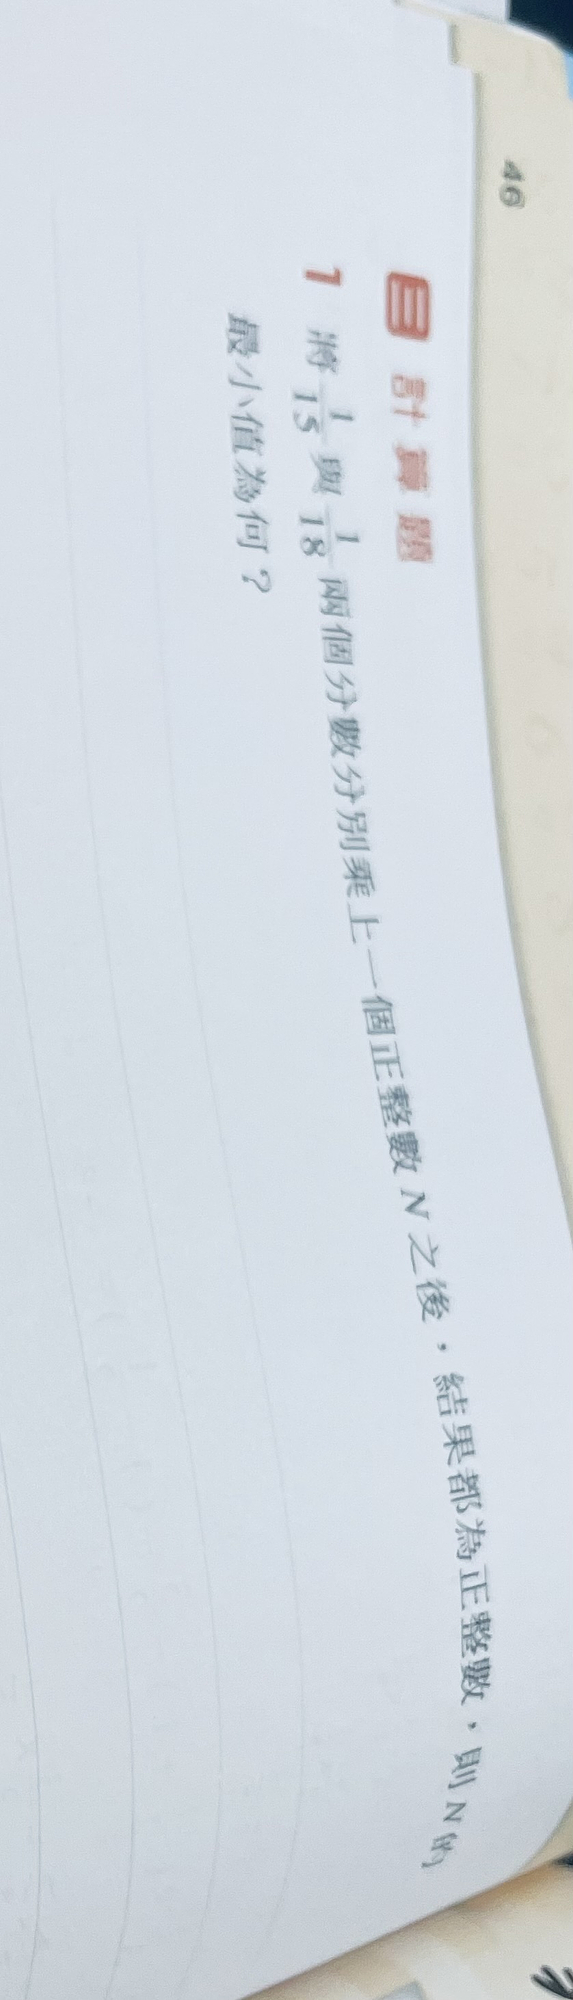 46
三 計算題
1 將 1/15 與 1/18 兩個分數分別乘上一個正整數 N 之後，結果都為正整數，則 N 的
最小值為何？